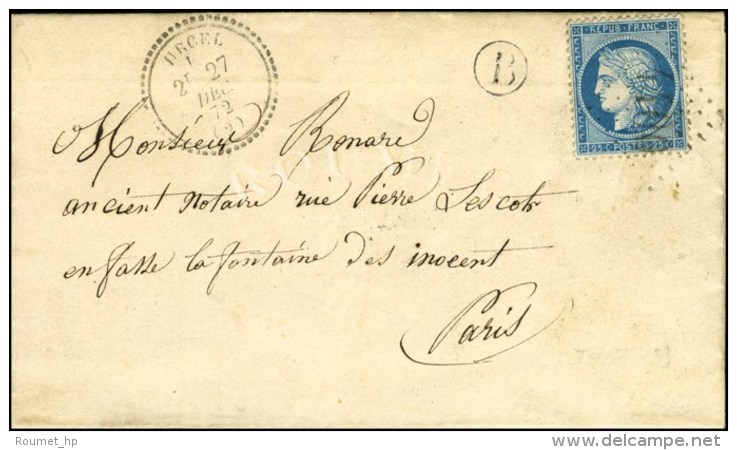 REPUB. FRANC.
B
27
DEC.
72
(2)
25 C POSTES 25 C
Monsieur Ronare
ancient Notaire rue Pierre Lescot
en fasse la fontaine des inocent
Paris
Roumet_hp
delcampe.net